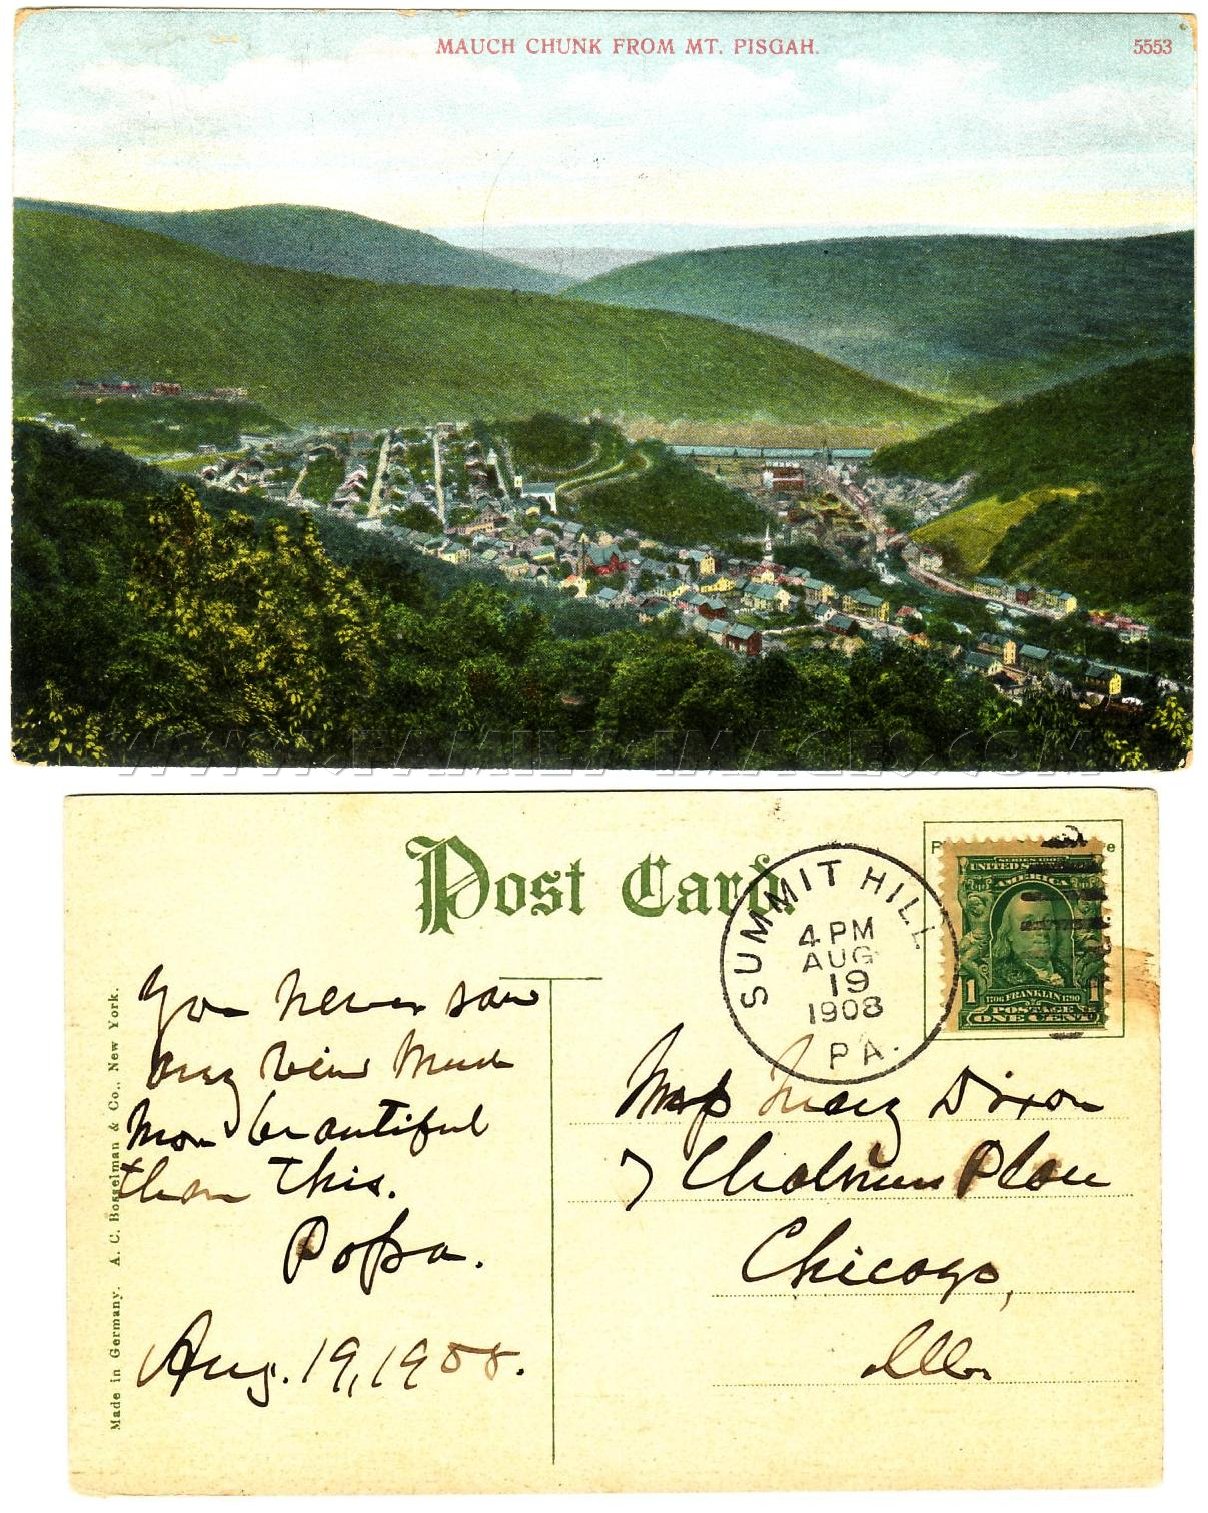 MAUCH CHUNK FROM MT. PISGAH.
5553
WWW.FAMILY-IMAGES.COM
Post Card
SUMMIT HILL
4 PM
AUG
19
1908
PA.
SERIES 1902
UNITED STATES
AMERICA
1
1706 FRANKLIN 1790
1
POSTAGE
ONE CENT
You never saw
any view much
more beautiful
than this.
Popa.
Aug. 19, 1908.
Miss Mary Dixon
7 Place
Chicago,
Ills.
Made in Germany. A. C. Bosselman & Co., New York.